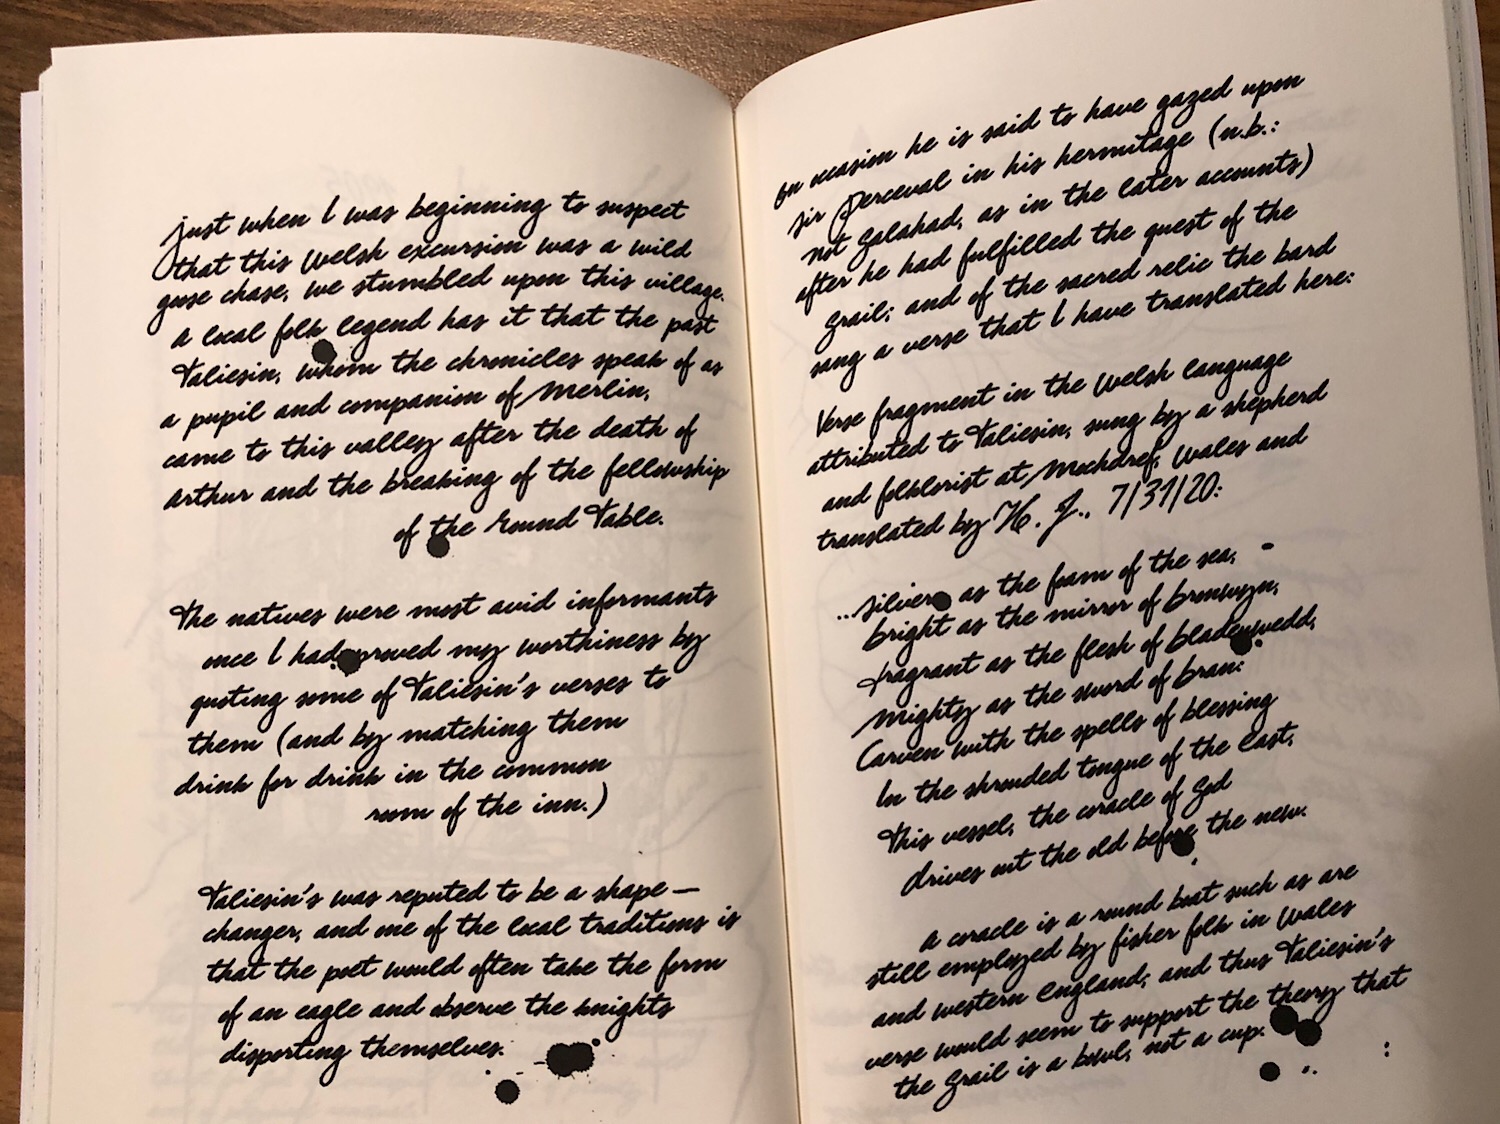 Just when I was beginning to suspect
that this Welsh excursion was a wild
goose chase, we stumbled upon this village.
A local folk legend has it that the past
Taliesin, whom the chronicles speak of as
a pupil and companion of Merlin,
came to this valley after the death of
Arthur and the breaking of the fellowship
of the Round Table.
The natives were most avid informants
once I had proved my worthiness by
quoting some of Taliesin's verses to
them (and by matching them
drink for drink in the common
room of the inn.)
Taliesin's was reputed to be a shape—
changer, and one of the local traditions is
that the poet would often take the form
of an eagle and observe the knights
disporting themselves.
On occasion he is said to have gazed upon
Sir Perceval in his hermitage (n.b.:
not Galahad, as in the later accounts)
after he had fulfilled the quest of the
Grail; and of the sacred relic the bard
sang a verse that I have translated here:
Verse fragment in the Welsh language
attributed to Taliesin, sung by a shepherd
and folklorist at Mochdref, Wales and
translated by H. J., 7/31/20:
...Silver as the foam of the sea,
Bright as the mirror of Bronwyn,
Fragrant as the flesh of Bladenwedd,
Mighty as the sword of Bran:
Carven with the spells of blessing
In the shrouded tongue of the East,
This vessel, the coracle of God
Drives out the old before the new.
A coracle is a round boat such as are
still employed by fisher folk in Wales
and western England; and thus Taliesin's
verse would seem to support the theory that
the Grail is a bowl, not a cup.